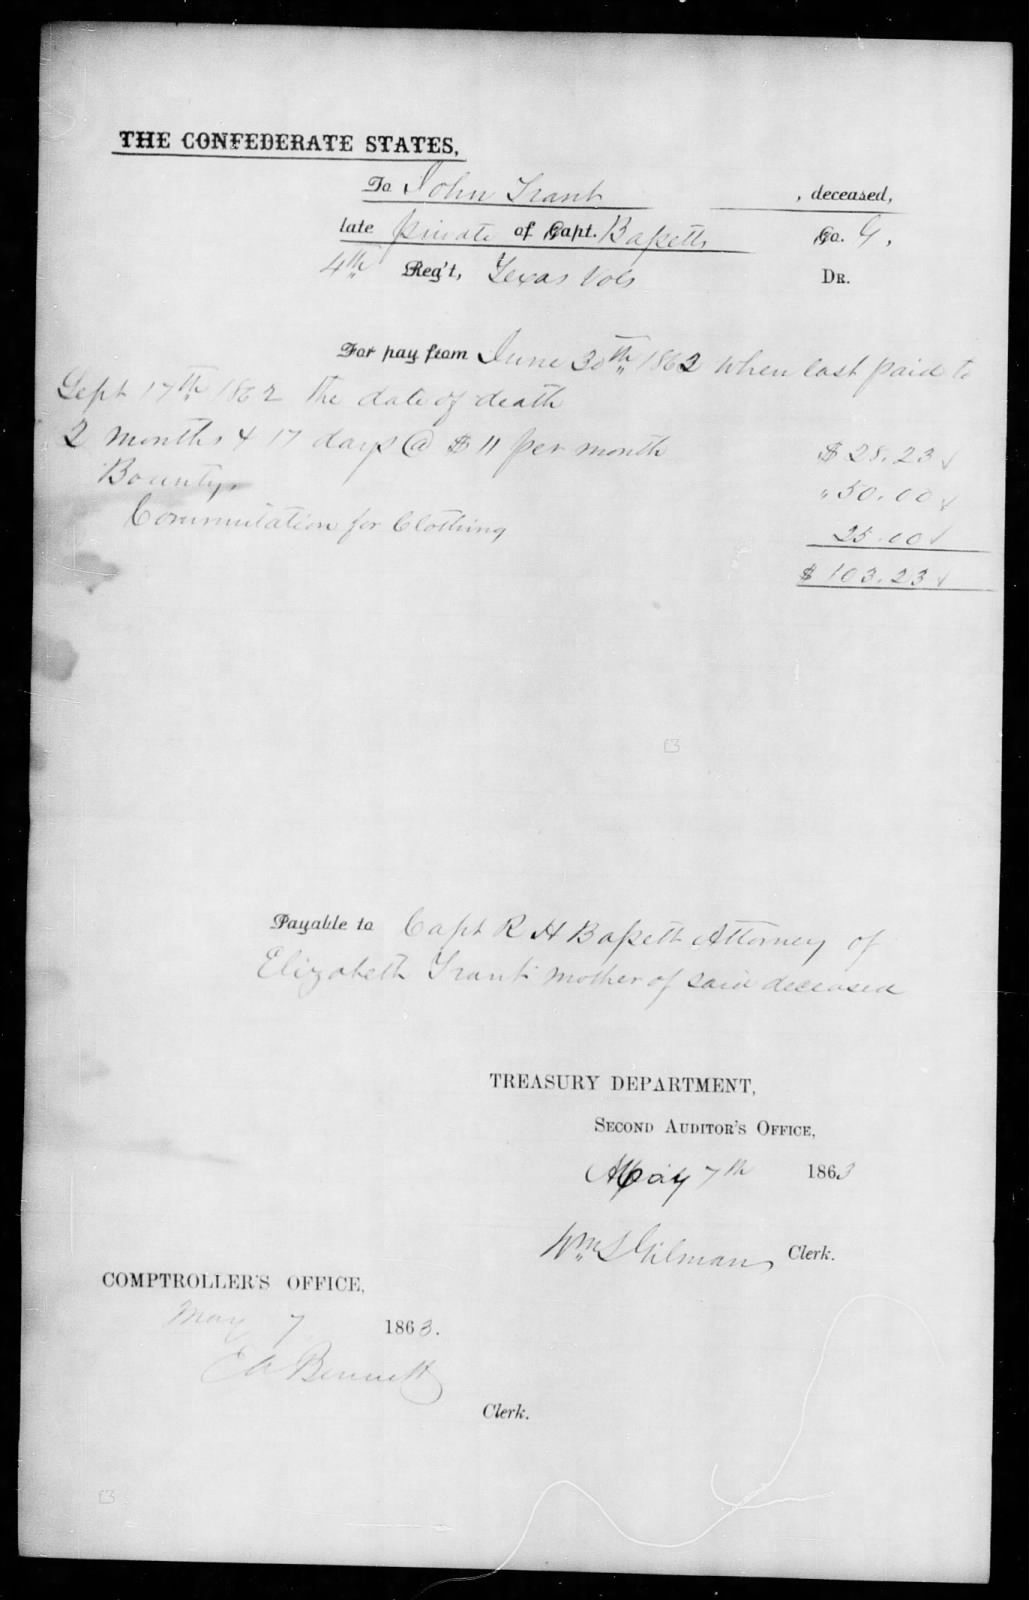 THE CONFEDERATE STATES,
To John Grant, deceased,
late private of Capt. Bassetts Co. G,
4th Reg't, Texas Vols DR.
For pay from June 30th 1862 when last paid to
Sept 17th 1862 the date of death
2 months & 17 days @ $11 per month $28.23
Bounty, " 50.00
Commutation for Clothing 25.00
$103.23
Payable to Capt R H Bassett Attorney of
Elizabeth Grant mother of said deceased
TREASURY DEPARTMENT,
SECOND AUDITOR'S OFFICE,
May 7th 1863
Wm S Gilman, Clerk.
COMPTROLLER'S OFFICE,
May 7 1863.
Bennett
Clerk.